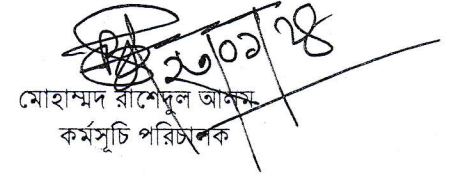 ২৩|০১|২৪
মোহাম্মদ রাশেদুল আলম
কর্মসূচি পরিচালক